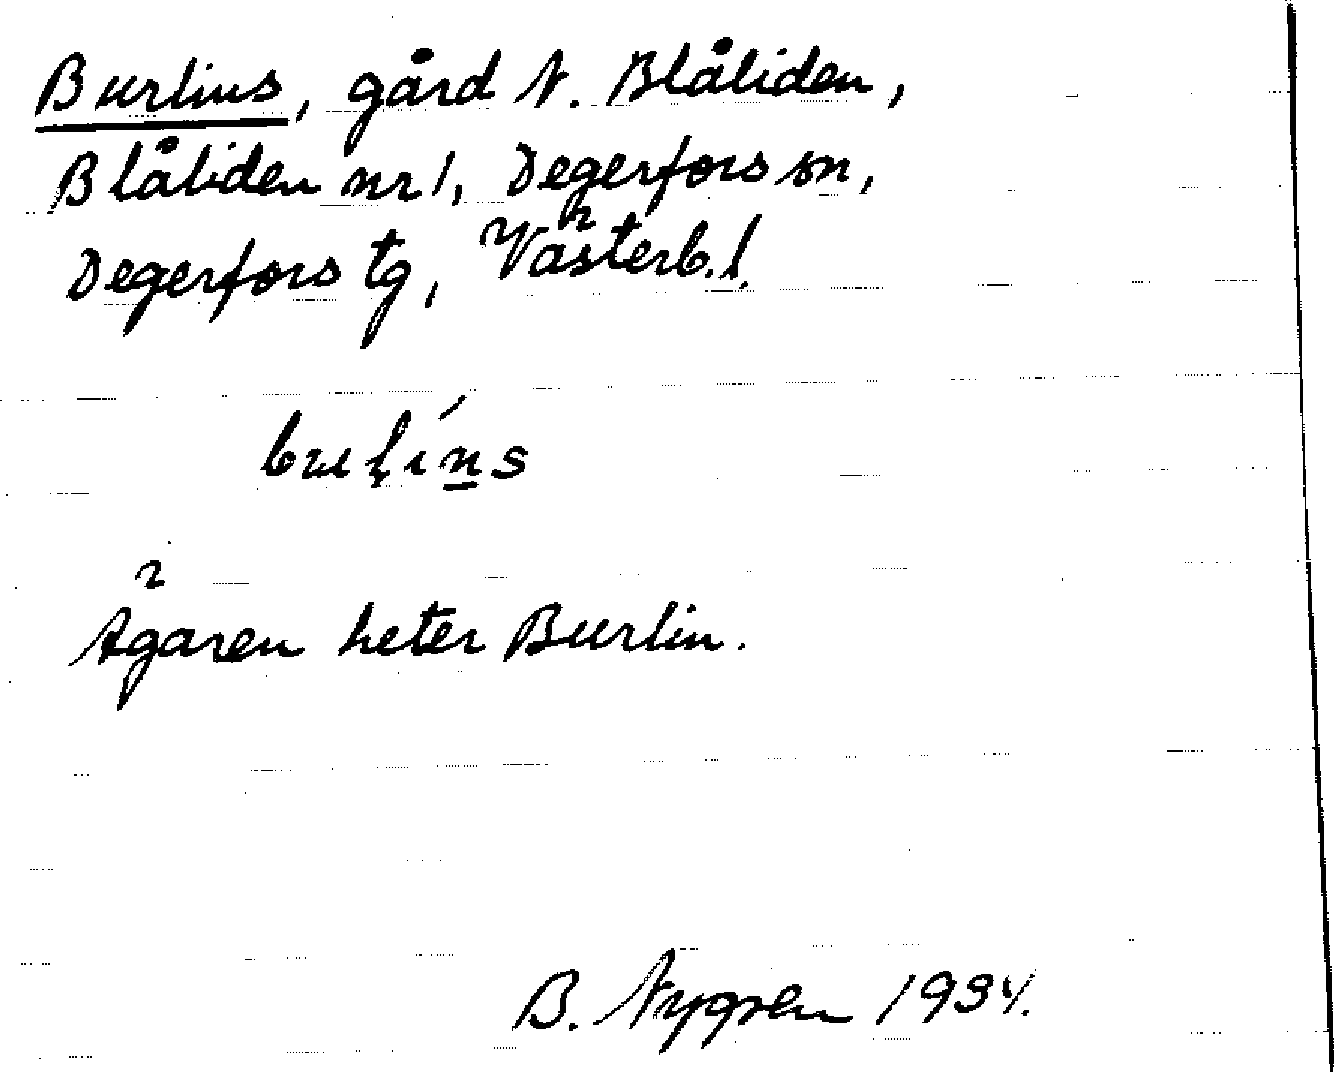 Burlins, gård N. Blåliden,
Blåliden nr 1, Degerfors sn,
Degerfors tg, Västerb. l.
Ägaren heter Burlin.
B. Nygren 1934.